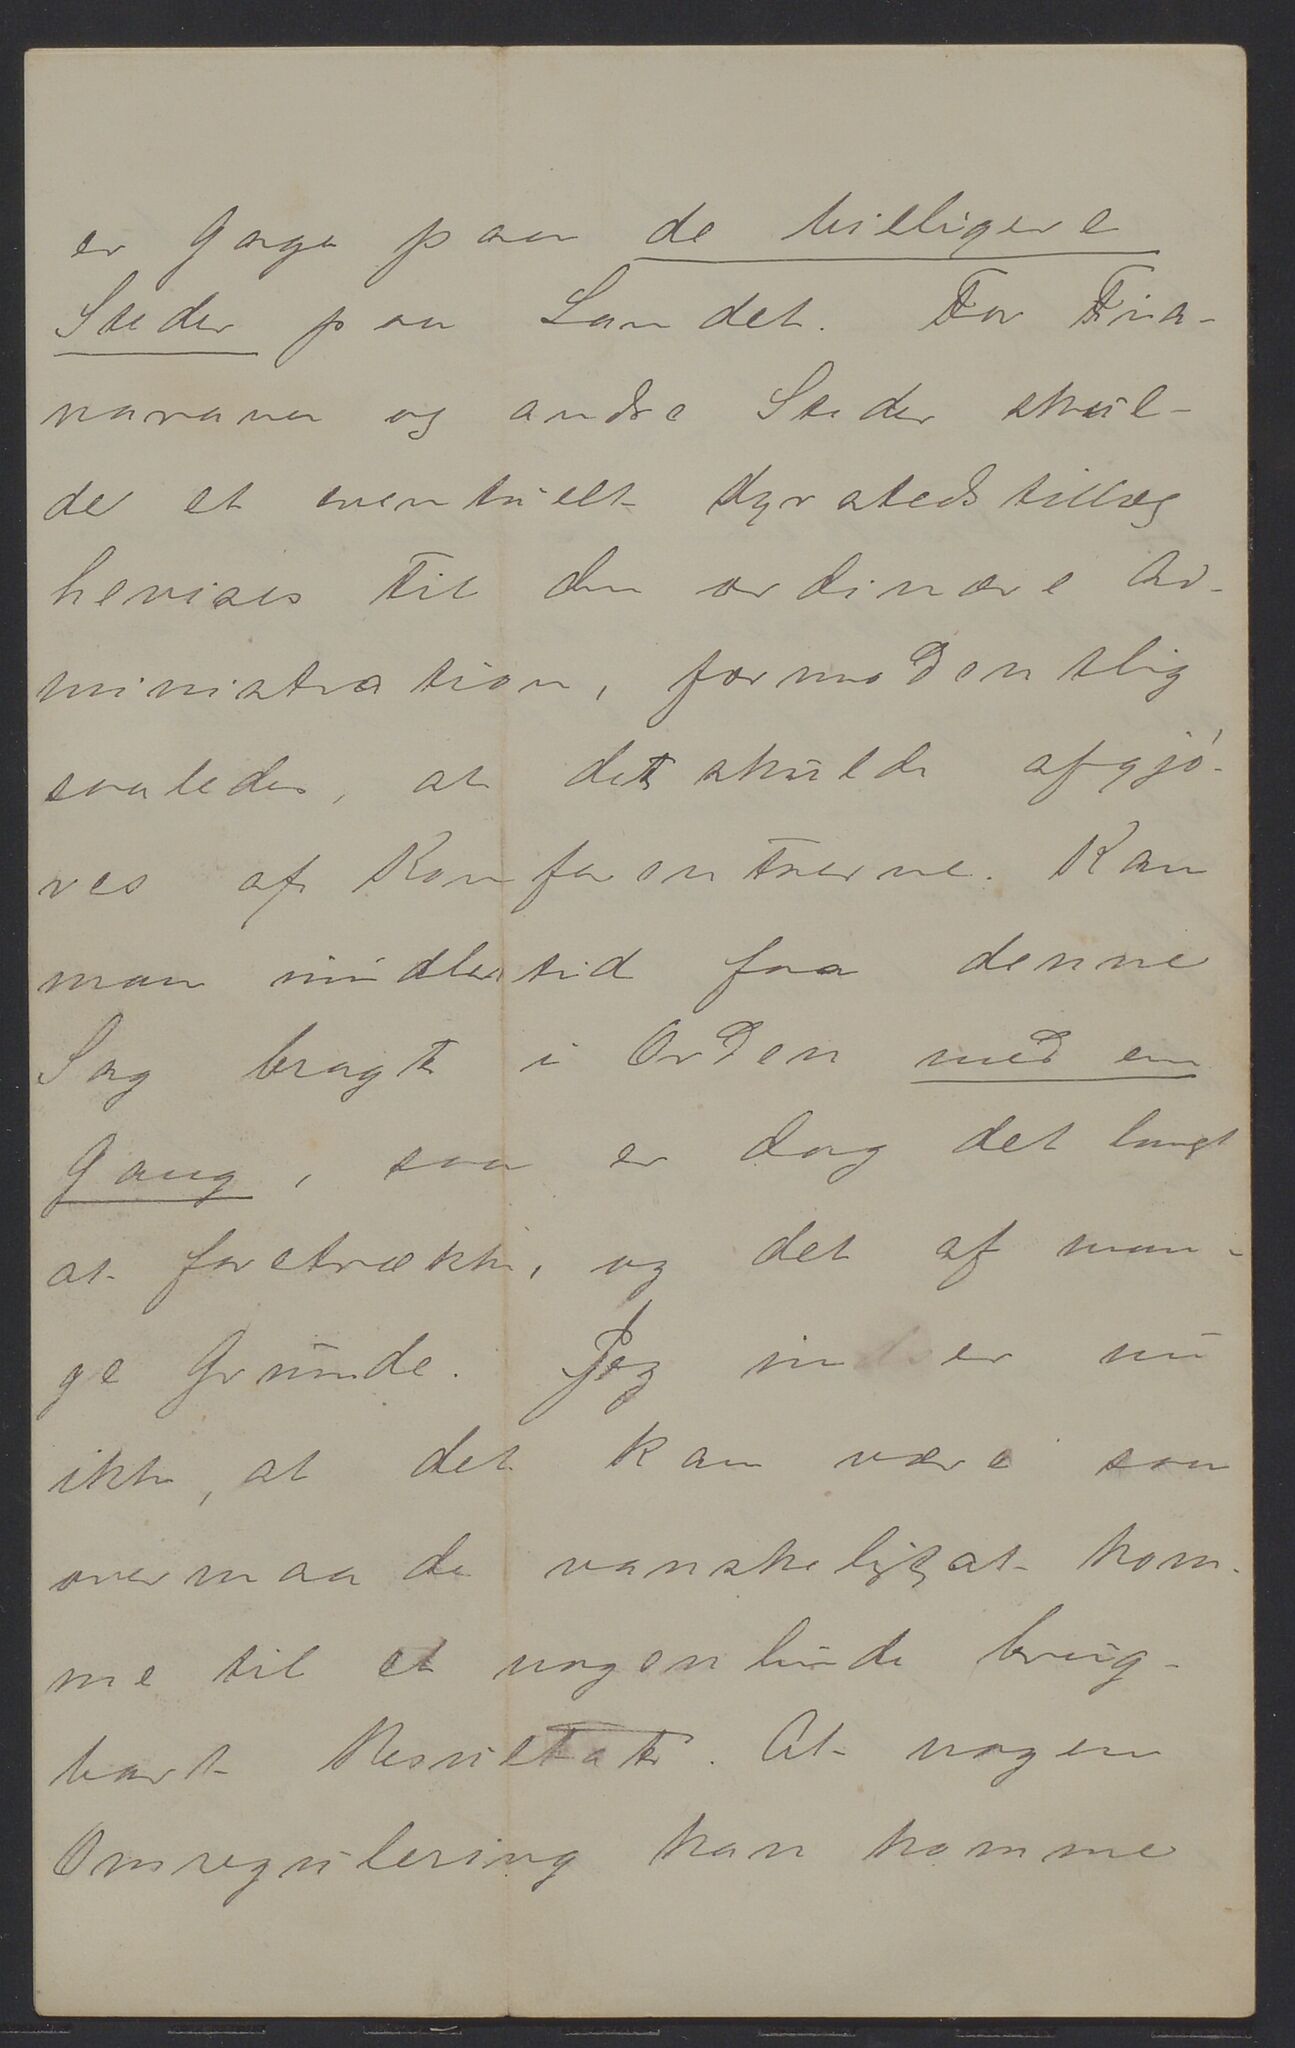 er Gage paa de billigere
Steder paa Landet. For Fia-
narana og andre Steder skul-
de et eventuelt dyrstedstillæg
henvises til den ordinære Ad-
ministration, formodentlig
saaledes, at det skulde afgjö-
res af Konferentserne. Kan
man imidlertid faa denne
Sag bragt i Orden med en
Gang, saa er dog det langt
at foretrække, og det af man-
ge Grunde. Jeg indser nu
ikke, at det kan være saa
overmaade vanskeligt at kom-
me til et nogenlunde brug-
bart Resultat. At nogen
Omregulering kan komme